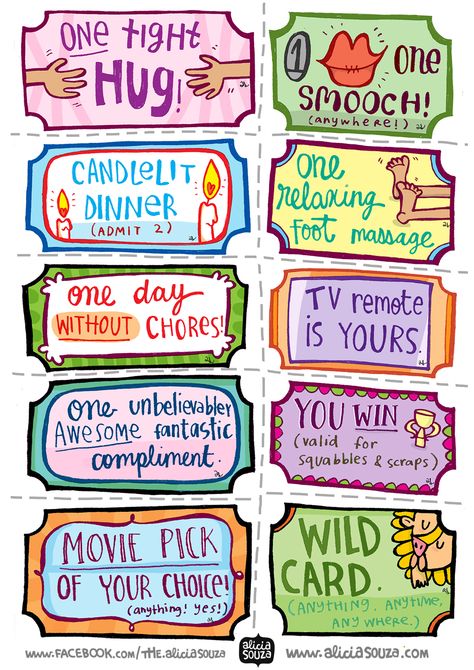 ONE tight
HUG!
1 one
SMOOCH!
(anywhere!)
CANDLELIT
DINNER
(ADMIT 2)
one
relaxing
foot massage
one day
WITHOUT CHORES!
TV remote
is YOURS.
one unbelievabley
AWESOME fantastic
compliment.
YOU WIN
(valid for
squabbles & scraps)
MOVIE PICK
OF YOUR CHOICE!
(anything! yes!)
WILD
CARD.
(ANYTHING. ANYTIME,
ANY WHERE.)
www.FACEBOOK.com/THE.aliciaSouza
alicia
Souza
www.aliciaSouza.com